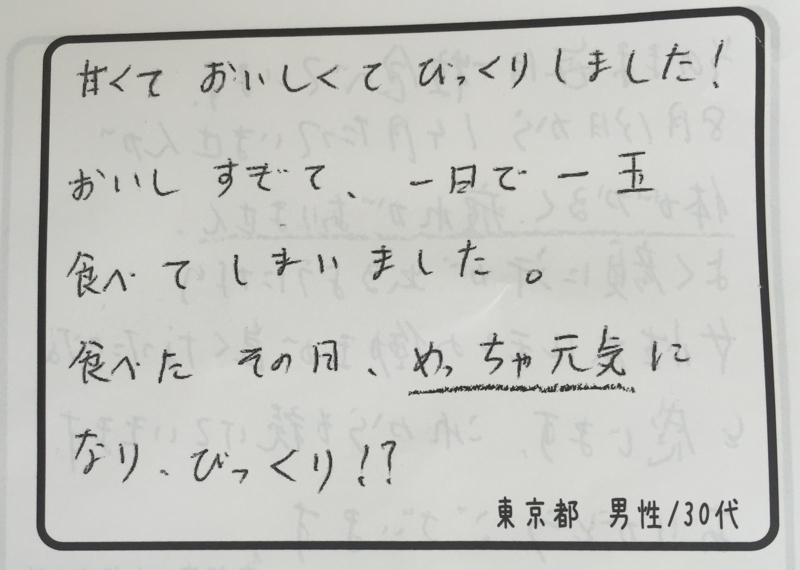 甘くて おいしくて びっくりしました!
おいし すぎて、一日で 一玉
食べて しまいました。
食べた その日、めっちゃ元気に
なり、びっくり!?
東京都 男性/30代